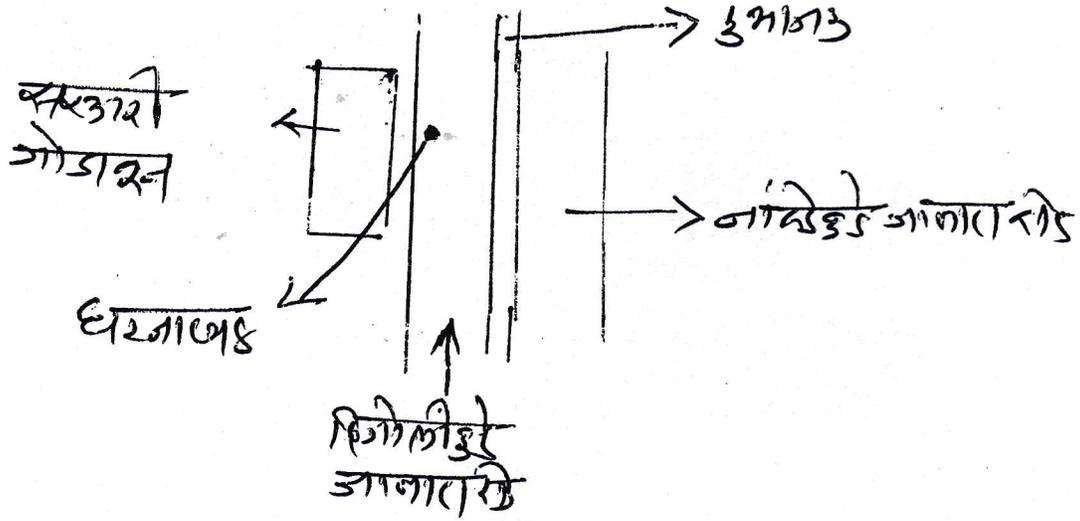 दुभाजक
सरकारी
गोडाऊन
नांदेडकडे जाणारा रोड
घटनास्थळ
हिंगोलीकडे
जाणारा रोड